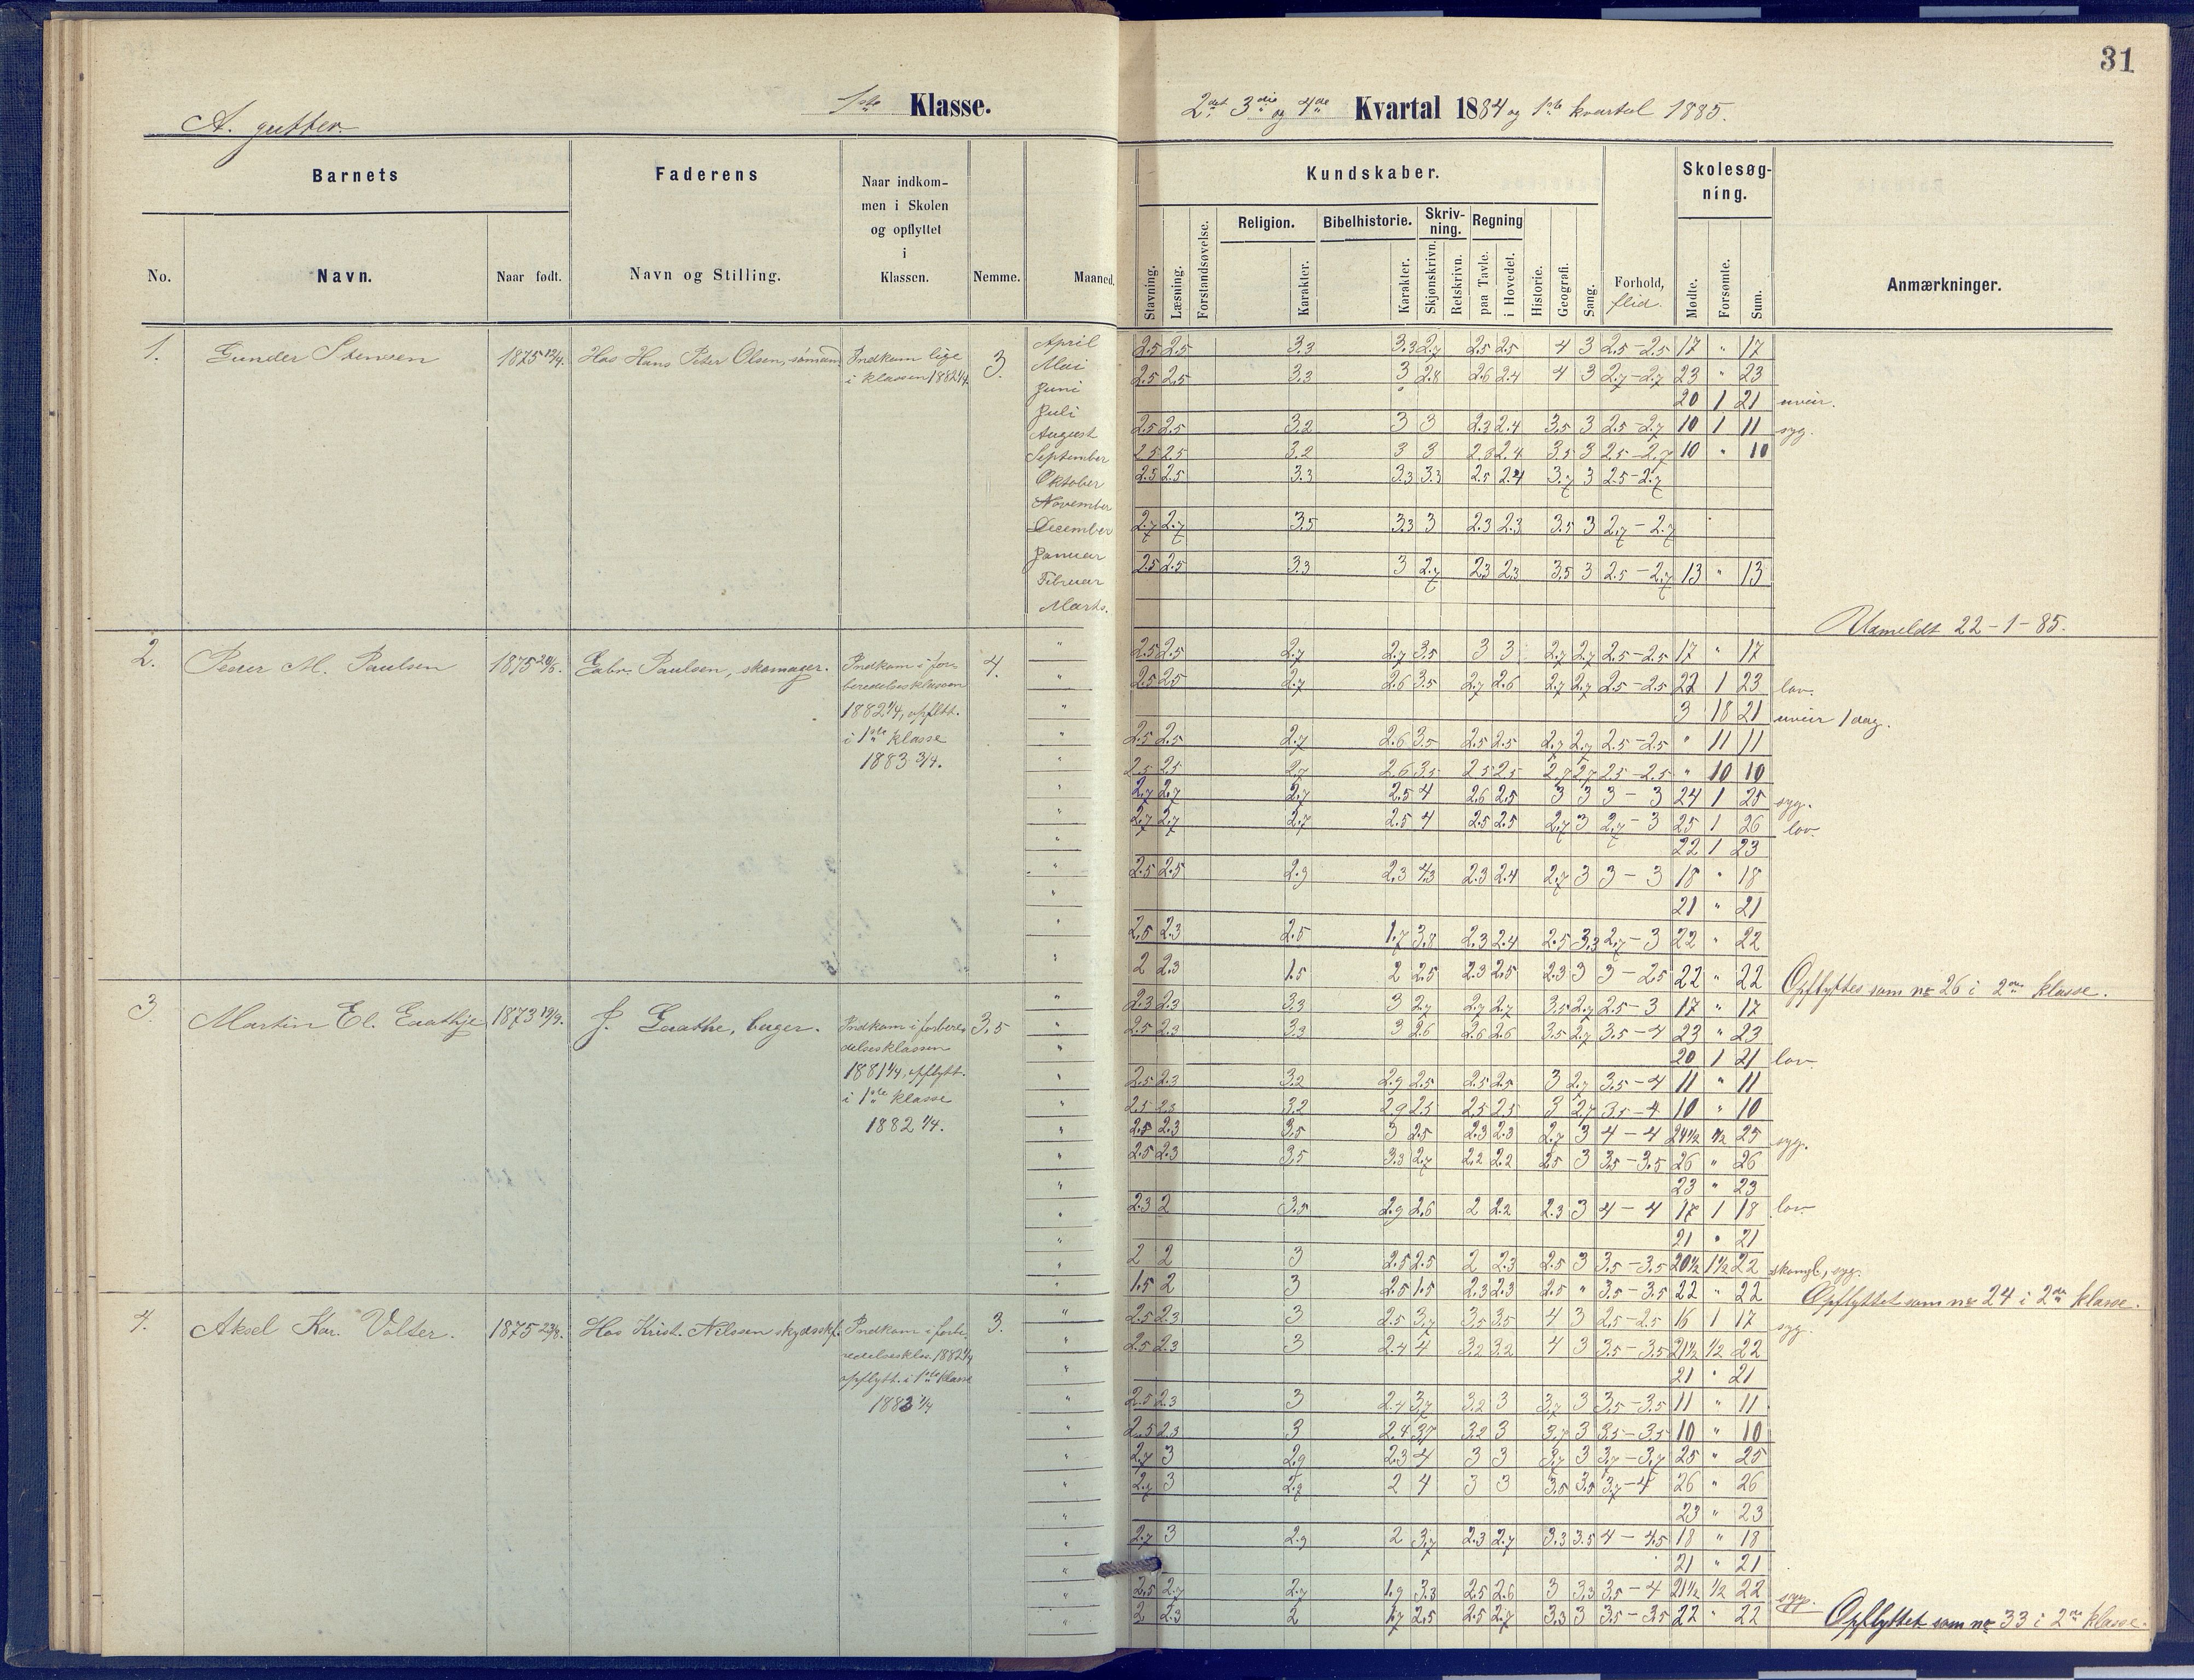 31
A. gutter.
1ste Klasse.
2det 3die og 4de Kvartal 1884 og 1ste kvartal 1885.
Barnets
Faderens
Naar indkom-
men i Skolen
og opflyttet
i
Klassen.
No.
Navn.
Naar født.
Navn og Stilling.
Nemme.
Maaned.
Kundskaber.
Skolesøg-
ning.
Stavning.
Læsning.
Forstandsøvelse.
Religion.
Karakter.
Bibelhistorie.
Karakter.
Skriv-
ning.
Skjønskrivn.
Retskrivn.
Regning
paa Tavle.
i Hovedet.
Historie.
Geografi.
Sang.
Forhold,
flid.
Mødte.
Forsømte.
Sum.
Anmærkninger.
1. Gunder Stensen 1875 12/4. Hos Hans Peter Olsen, sømand. Indkom lige
i klassen 1882 1/4 3.
April 2.5 2.5 3.3 3.3 2.7 2.5 2.5 4 3 2.5-2.5 17 " 17
Mai 2.5 2.5 3.3 3 2.8 2.6 2.4 4 3 2.7-2.7 23 " 23
Juni 20 1 21 uveir.
Juli 2.5 2.5 3.2 3 3 2.3 2.4 3.5 3 2.5-2.7 10 1 11 syg.
August 2.5 2.5 3.2 3 3 2.8 2.4 3.5 3 2.5-2.7 10 " 10
September 2.5 2.5 3.3 3.3 3.3 2.5 2.4 3.7 3 2.5-2.7
Oktober
November 2.7 2.7 3.5 3.3 3 2.3 2.3 3.5 3 2.7-2.7
December
Januar 2.5 2.5 3.3 3 2.7 2.3 2.3 3.5 3 2.5-2.7 13 " 13
Februar
Marts.
Udmeldt 22-1-85.
2. Peder M. Paulsen 1875 20/5. Gabr. Paulsen, skomager. Indkom i for-
beredelsesklassen
1882 1/4, opfltt.
i 1ste klasse
1883 3/4.
4.
2.5 2.5 2.7 2.7 3.5 3 3 2.7 2.7 2.5-2.5 17 " 17
2.5 2.5 2.7 2.6 3.5 2.7 2.6 2.7 2.7 2.5-2.5 22 1 23 lov.
3 18 21 uveir 1 dag.
2.5 2.5 2.7 2.6 3.5 2.5 2.5 2.7 2.7 2.5-2.5 " 11 11
2.5 2.5 2.7 2.6 3.5 2.5 2.5 2.7 2.7 2.5-2.5 " 10 10
2.7 2.7 2.7 2.5 4 2.6 2.5 3 3 3-3 24 1 25 syg.
2.7 2.7 2.7 2.5 4 2.5 2.5 2.7 3 2.7-3 25 1 26 lov.
22 1 23
2.5 2.5 2.9 2.3 4.3 2.3 2.4 2.7 3 3-3 18 " 18
21 " 21
2.5 2.3 2.5 1.7 3.8 2.3 2.4 2.5 3.3 2.7-3 22 " 22
2 2.3 1.5 2 2.5 2.3 2.5 2.3 3 3-2.5 22 " 22 Opflyttes som no 26 i 2den klasse.
3. Martin El. Gaathje 1873 19/9. J. Gaathe, bager. Indkom i forbere-
delsesklassen
1881 1/4, opflytt.
i 1ste klasse
1882 1/4.
3.5
2.3 2.3 3.3 3 2.7 2.7 2.7 3.5 2.7 2.5-3 17 " 17
2.5 2.3 3.3 3 2.6 2.6 2.6 3.5 2.7 3.5-4 23 " 23
20 1 21 lov
2.5 2.3 3.2 2.9 2.5 2.5 2.5 3 2.7 3.5-4 11 " 11
2.5 2.3 3.2 2.9 2.5 2.5 2.5 3 2.7 3.5-4 10 " 10
2.5 2.3 3.5 3 2.5 2.3 2.3 2.7 3 4-4 24 1/2 1/2 25 syg.
2.5 2.3 3.5 3.3 2.7 2.2 2.2 2.5 3 3.5-3.5 26 " 26
23 " 23
2.3 2 3.5 2.9 2.6 2 2.2 2.3 3 4-4 17 1 18 lov
21 " 21
2 2 3 2.5 2.5 2 2.3 2.5 3 3.5-3.5 20 1/2 1 1/2 22 skomgl, syg.
1.5 2 3 2.5 1.5 2.3 2.3 2.5 " 3.5-3.5 22 " 22 Opflyttet som no 24 i 2den klasse.
4. Aksel Kar. Volter. 1875 23/8. Hos Krist. Nilssen skydsskf. Indkom i forbe-
redelsesklas. 1882 1/4
opflytt. i 1ste klasse
1883 1/4
3.
2.5 2.3 3 2.5 3.7 3.5 3.5 4 3 2.5-2.5 16 1 17 syg.
2.5 2.3 3 2.4 4 3.2 3.2 4 3 3.5-3.5 21 1/2 1/2 22
21 " 21
2.5 2.3 3 2.4 3.7 3.2 3 3.7 3 3.5-3.5 11 " 11
2.5 2.3 3 2.4 3.7 3.2 3 3.7 3 3.5-3.5 10 " 10
2.7 3 2.9 2.3 4 3 3 3.7 3 3.7-3.7 25 " 25
2.7 3 2.7 2 4 3 3 3.5 3.5 3.7-4 26 " 26
23 " 23
2.7 3 2.9 2 3.7 2.3 2.7 3.3 3.5 4-4.5 18 " 18
21 " 21
2.5 2.7 2.7 1.9 3.3 2.5 2.6 3 3.3 3.5-4 21 1/2 1/2 22 syg.
2 2.3 2 1.7 2.5 2.5 2.7 3.3 3 3.5-3.5 22 " 22 Opflyttet som no 33 i 2den klasse.